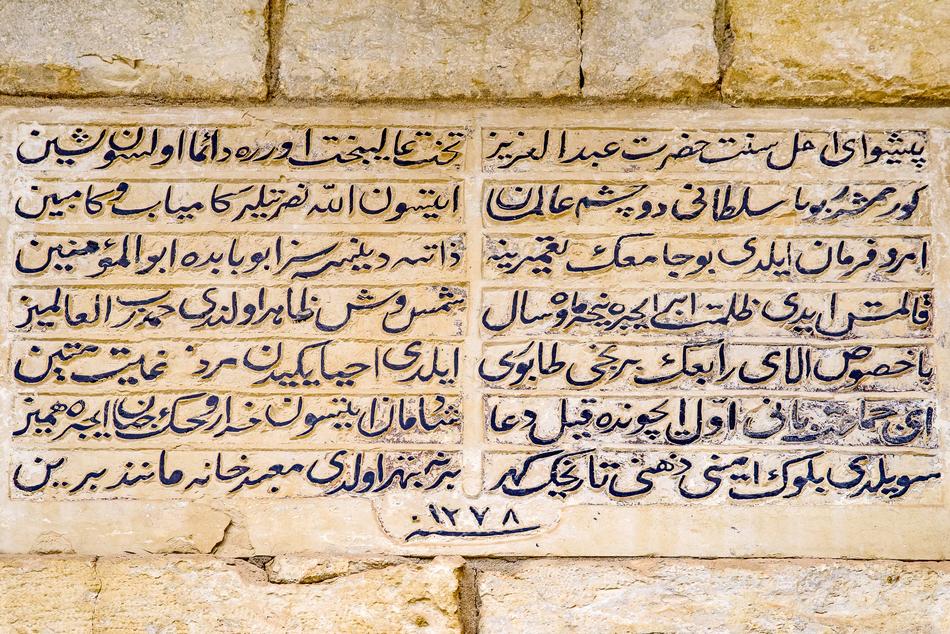 پیشوای اهل سنت حضرت عبد العزیز تخت عالیبخت اوزره دائما اولسون نشین
سلطانی دو چشم عالمان ایتسون الله نصرتیله کامیاب و کامبین
امر و فرمان ایلدی بوجا معك تعمیرینه ذاتنه دینسه سزا بو بابده ابو المؤمنین
قالمش ایدی ظلمت ایچره نیجه ماه و سال شمس وش ظاهر اولدی حمد رب العالمین
باخصوص الای رابعك برنجی طابوری ایلدی احیا یکیدن متین
ای جماعت اول ایچونده قیل دعا شادمان ایتسون ایچره همین
سویلدی بلوك امینی ذهنی تاریخك برتر اولدی معبد خانه مانند برین
سنه ١٢٧٨